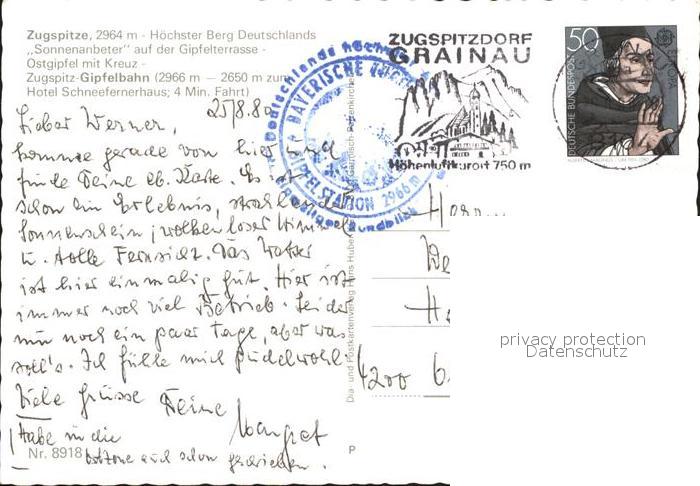 Zugspitze, 2964 m - Höchster Berg Deutschlands
„Sonnenanbeter" auf der Gipfelterrasse -
Ostgipfel mit Kreuz -
Zugspitz-Gipfelbahn (2966 m — 2650 m zum
Hotel Schneefernerhaus; 4 Min. Fahrt)
25/8.80
Lieber Werner,
komme gerade von hier und
finde Deine lb. Karte. Es ist
schon ein Erlebnis, strahlender
Sonnenschein, wolkenloser Himmel
u. tolle Fernsicht. Das Wetter
ist hier einmalig gut. Hier ist
immer noch viel Betrieb. Leider
nur noch ein paar Tage, aber was
soll's. Ich fühle mich pudelwohl
Viele Grüsse Deine
Margret
Habe in die
Ostzone auch schon geschrieben.
Nr. 8918
P
BAYERISCHE
GIPFELSTATION 2966 m
Rundblick
ZUGSPITZDORF
GRAINAU
Höhenluftkurort 750 m
50
DEUTSCHE BUNDESPOST
EUROPA
CEPT
Dia- und Postkartenverlag Hans Huber Garmisch-Partenkirchen
Herrn
4200
privacy protection
Datenschutz